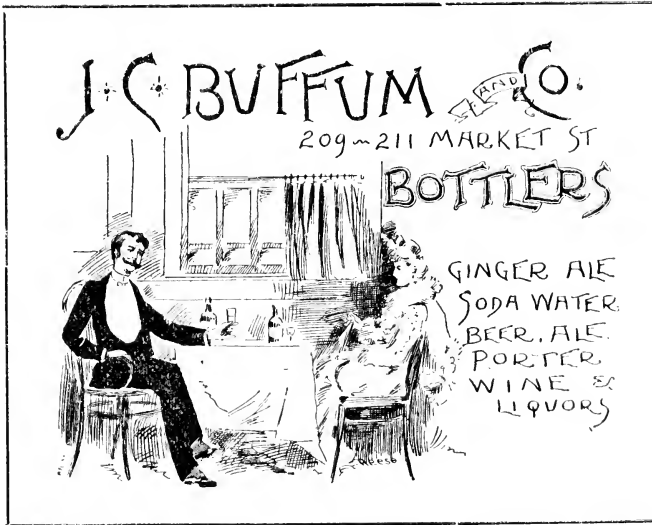 J. C. BUFFUM AND CO.
209~211 MARKET ST
BOTTLERS
GINGER ALE
SODA WATER
BEER. ALE.
PORTER
WINE &
LIQUORS